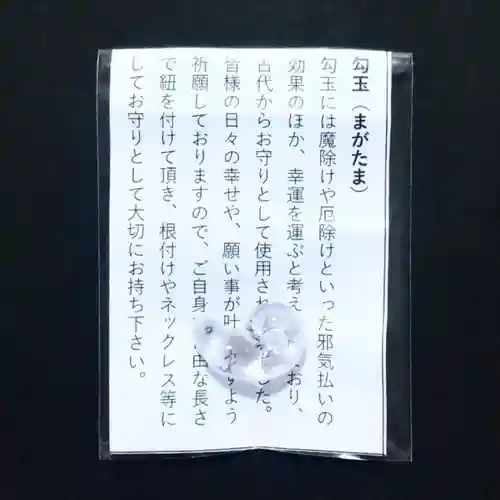 勾玉（まがたま）
勾玉には魔除けや厄除けといった邪気払いの
効果のほか、幸運を運ぶと考え おり、
古代からお守りとして使用され した。
皆様の日々の幸せや、願い事が叶 よう
祈願しておりますので、ご自身 由な長さ
で紐を付けて頂き、根付けやネックレス等に
してお守りとして大切にお持ち下さい。